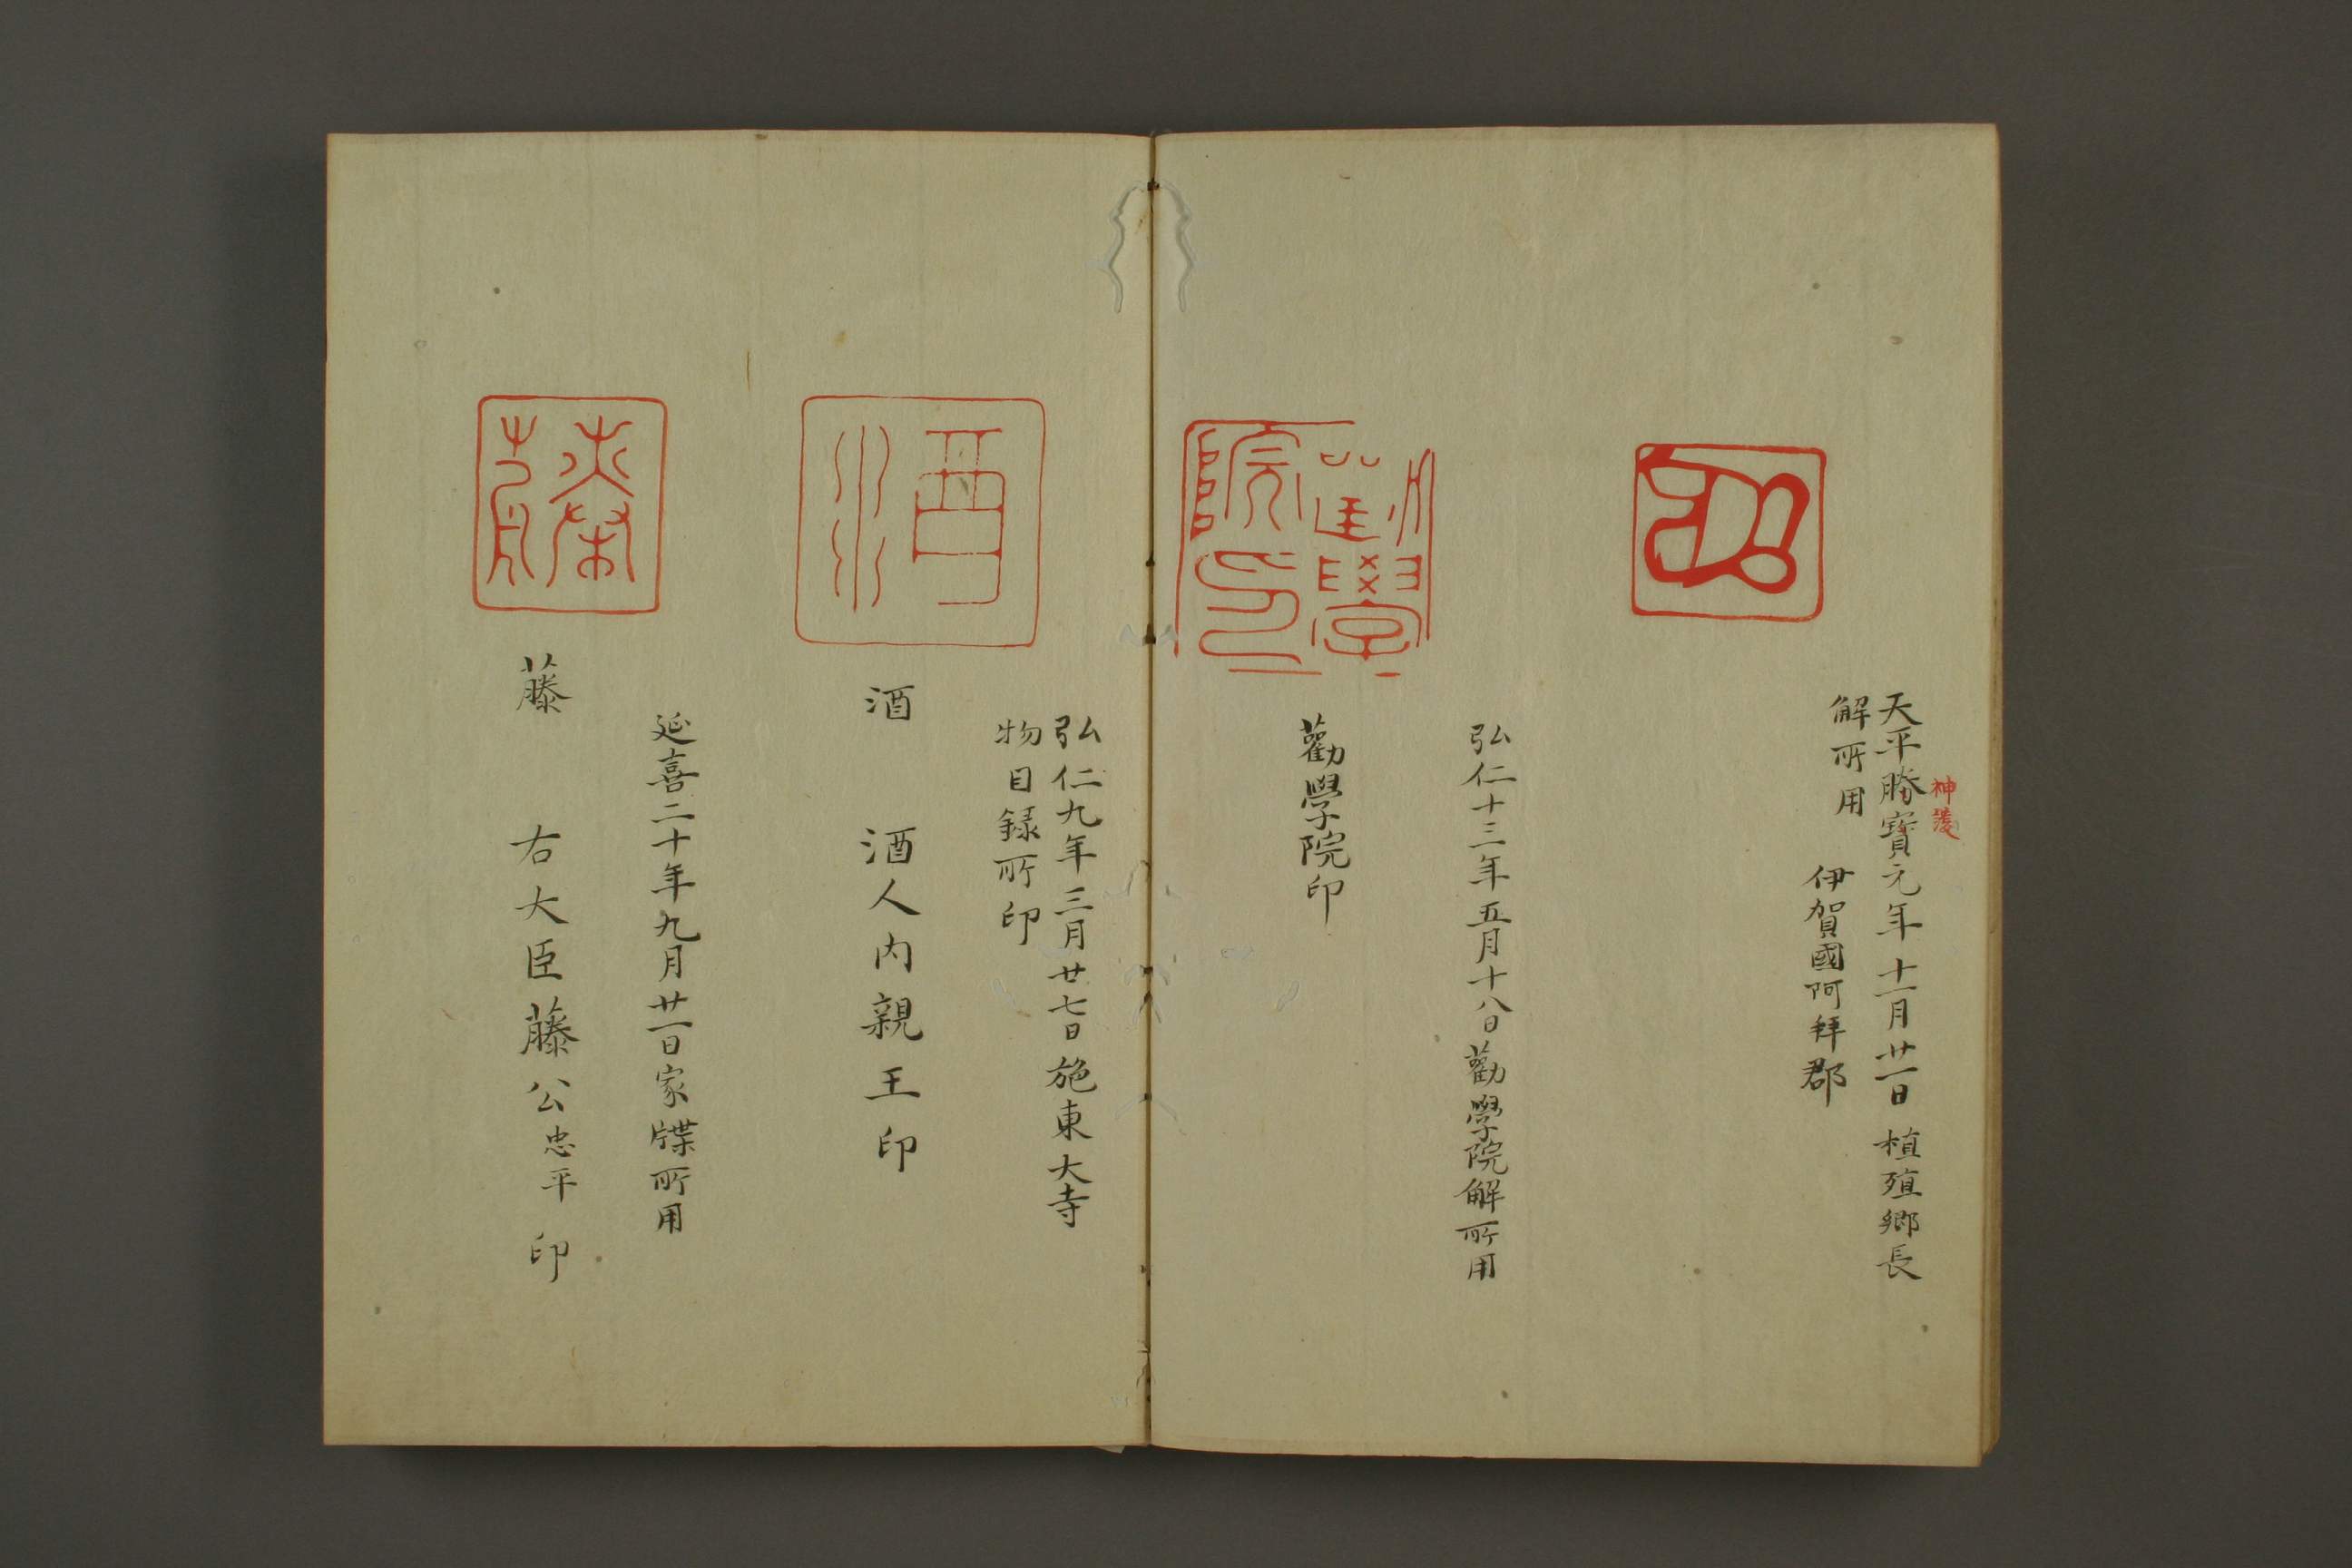 天平勝寶元年十一月廿一日植殖郷長
神護
解所用
伊賀國阿拜郡
弘仁十三年五月十八日勸學院解所用
勸學院印
勸學院印
弘仁九年三月廿七日施東大寺
物目録所印
酒
酒　酒人内親王印
延喜二十年九月廿一日家牒所用
藤
藤　右大臣藤公忠平印